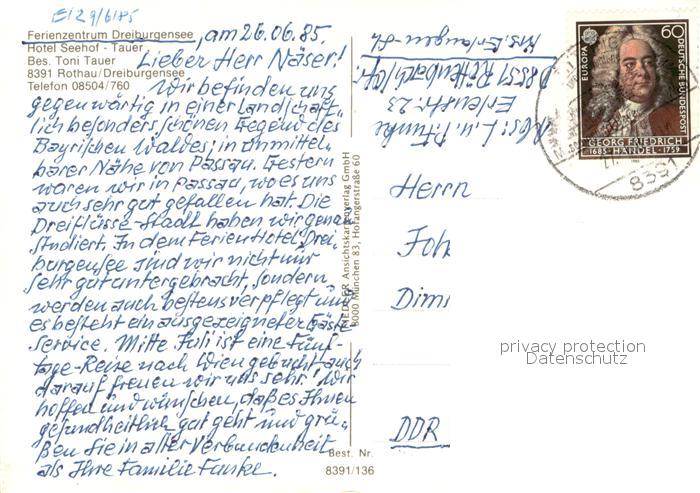 E/29/6/85
Ferienzentrum Dreiburgensee
Hotel Seehof - Tauer
Bes. Toni Tauer
8391 Rothau/Dreiburgensee
Telefon 08504/760
, am 26.06.85.
Lieber Herr Näser!
Wir befinden uns
gegenwärtig in einer landschaft-
lich besonders schönen Gegend des
Bayrischen Waldes, in unmittel-
barer Nähe von Passau. Gestern
waren wir in Passau, wo es uns
auch sehr gut gefallen hat. Die
Dreiflüsse-Stadt haben wir genau
studiert. In dem Ferien Hotel Drei-
burgensee sind wir nicht nur
sehr gut untergebracht, sondern
werden auch bestens verpflegt und
es besteht ein ausgezeigneter Gäste-
service. Mitte Juli ist eine Fünf-
tage-Reise nach Wien gebucht, auch
darauf freuen wir uns sehr. Wir
hoffen und wünschen, daß es Ihnen
gesundheitlich gut geht und grü-
ßen Sie in alter Verbundenheit
als Ihre Familie Funke.
MEDLER Ansichtskartenverlag GmbH
8000 München 83, Hofangerstraße 60
Best. Nr.
8391/136
Abs: L. u. P. Funke
Erlenstr. 23
D 8551 Röttenbach
Krs. Erlangen-
EUROPA
60
DEUTSCHE BUNDESPOST
GEORG FRIEDRICH
1685 HÄNDEL 1759
8391
Herrn
Joh
Dimi
DDR
privacy protection
Datenschutz